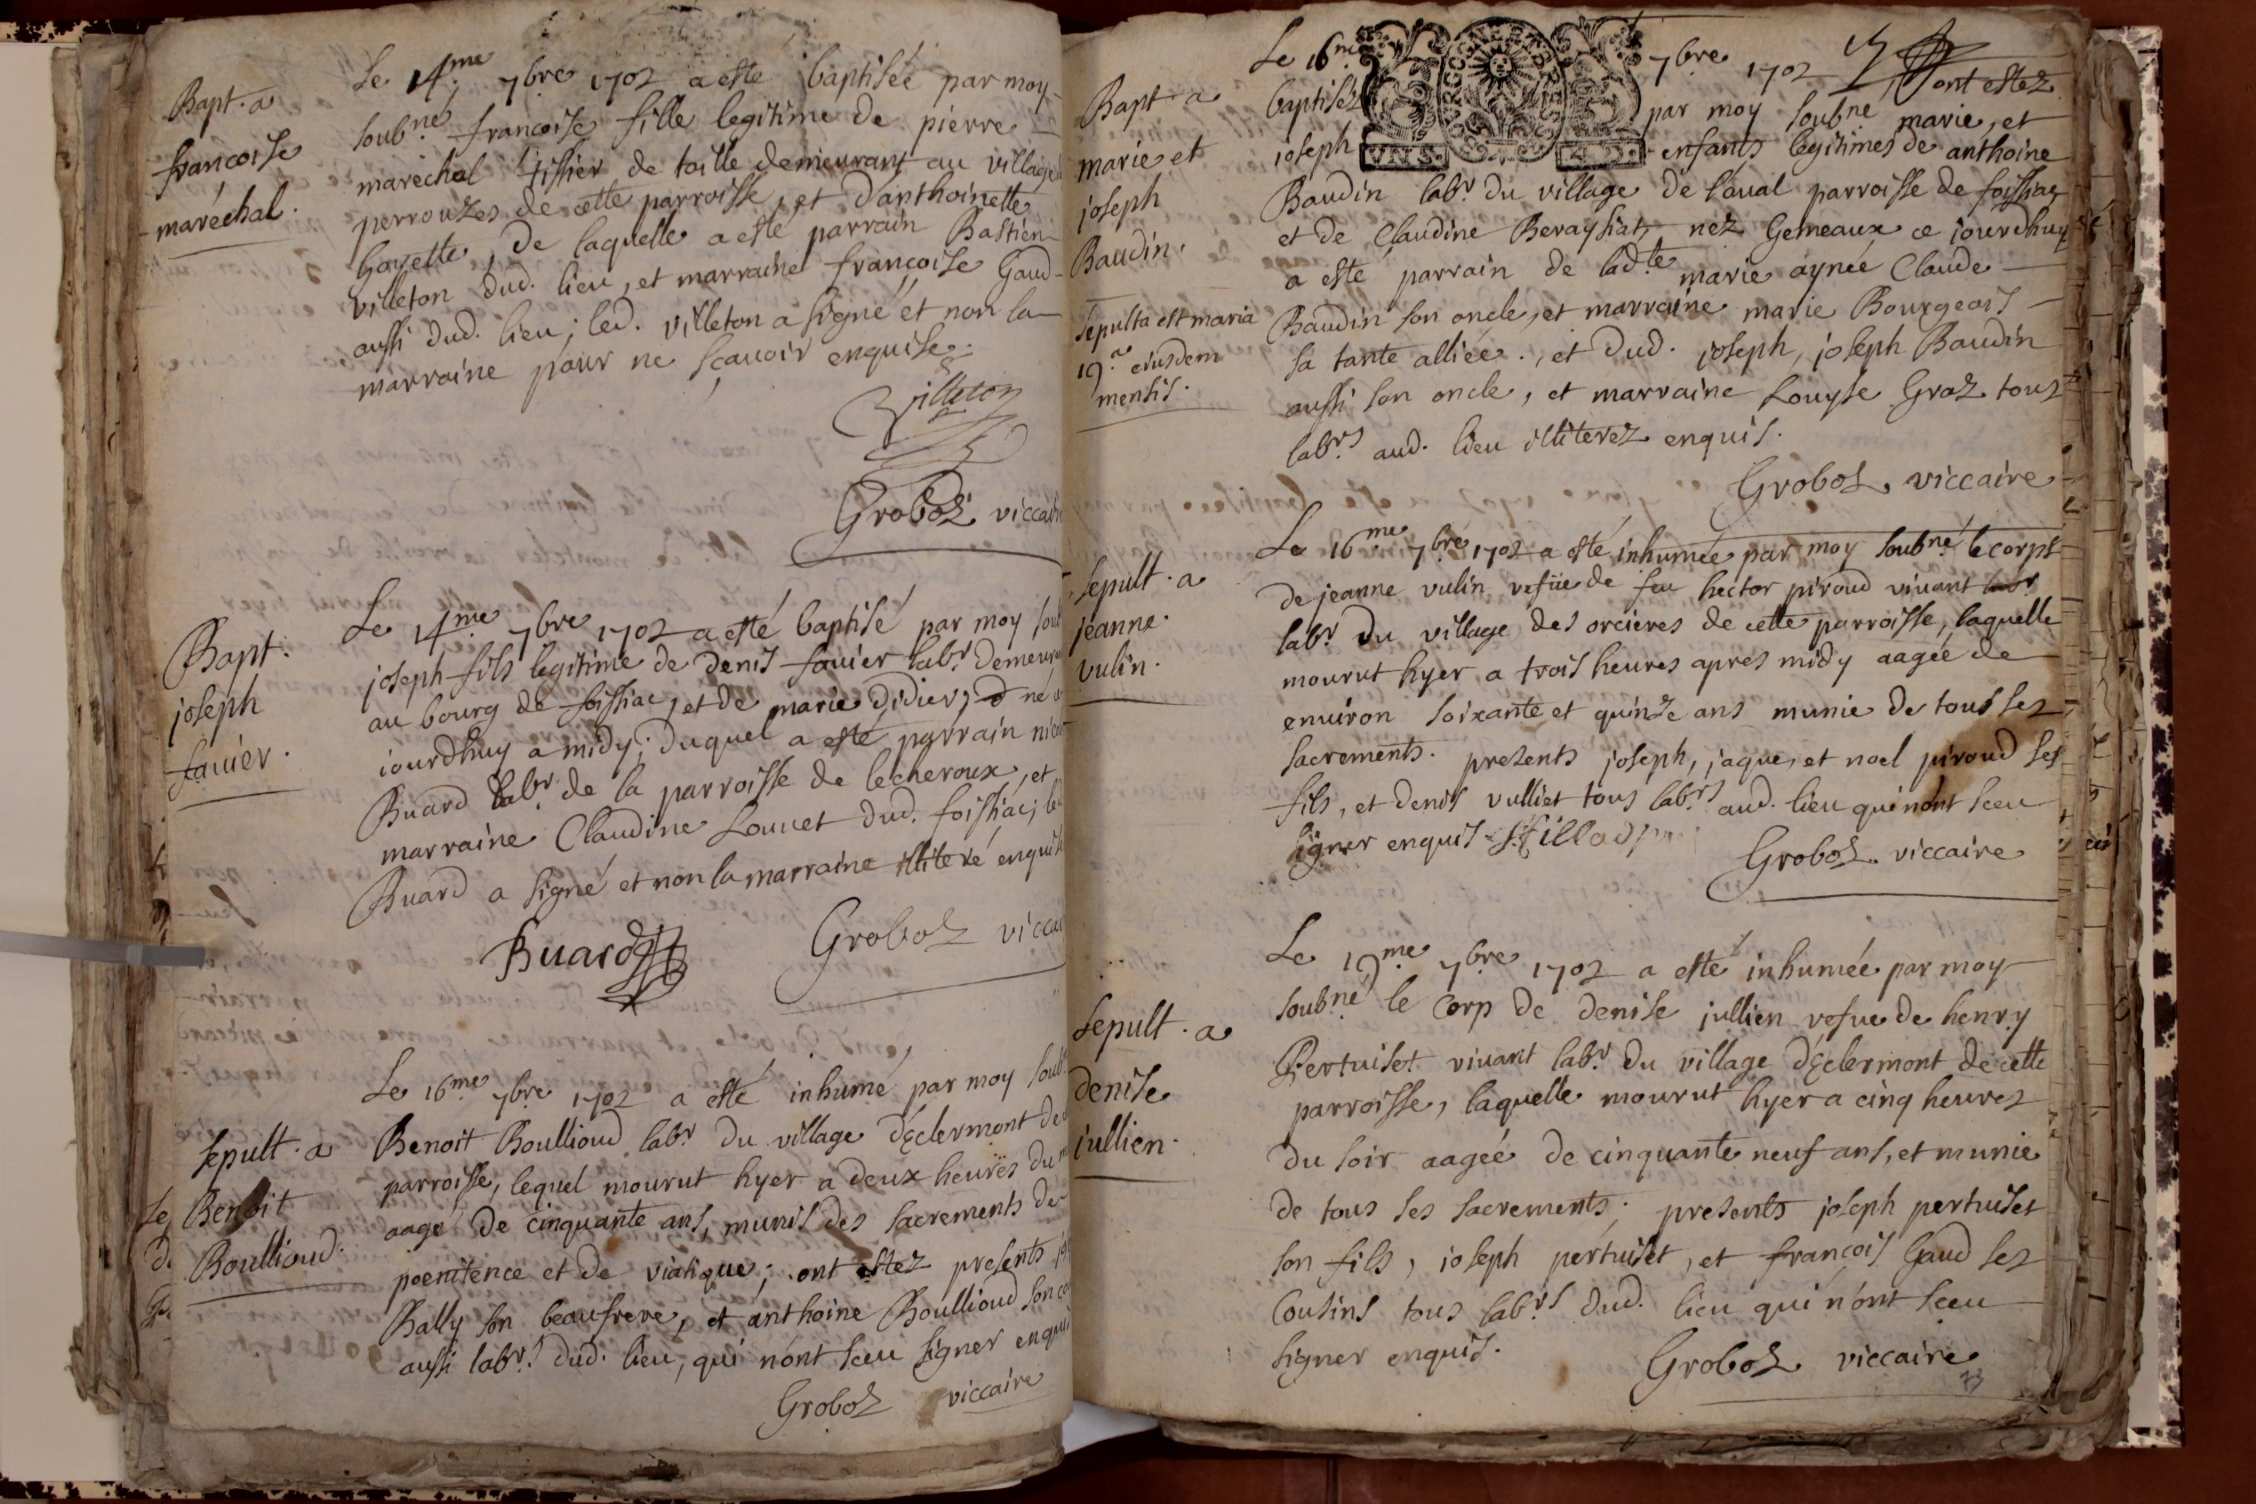 Bapt. a
francoise
maréchal.
Le 14.me 7bre 1702 a esté baptiséé par moy
soub.né francoise fille legitime de pierre
maréchal tissier de toille demeurant au village
perrouzes de cette parroisse, et d'anthoinette
Goyette, de laquelle a esté parrain Bastien
villeton dud. lieu, et marraine françoise Gaud
aussi dud. lieu; led. villeton a signé et non la
marraine pour ne sçavoir enquise.
Villeton
Groboz viccai
Bapt.
joseph
favier.
Le 14.me 7bre 1702 a esté baptisé par moy soub
joseph fils legitime de denis favier lab.r demeura
au bourg de foissiac, et de marie didier, né
iourdhuy a midy; duquel a esté parrain
Buard lab.r de la parroisse de lecheroux, et
marraine Claudine Louuet dud. foissiac; le
Buard a signé et non la marraine illiteré enquis
Buard
Groboz vicca
sepult. a
Benoit
Boullioud.
Le 16.me 7bre 1702 a esté inhumé par moy soub
Benoit Boullioud lab.r du village d'Eclermont de
parroisse, lequel mourut hyer a deux heures du
aagé de cinquante ans, munis des sacrements de
poenitence et de viatique; ont estez presents
Bally son beaufrere, et anthoine Boullioud son
aussi lab.rs dud. lieu, qui n'ont sceu signer enquis
Groboz viccaire
Bapt a
marie et
joseph
Baudin.
sepulta est maria
19.a eiusdem
mensis.
Le 16.me 7bre 1702 sont estez
baptisez par moy soubné marie, et
ioseph enfants legitimes de anthoine
VN S. 4 D.
Baudin lab.r du village de l'aual parroisse de foissiac
et de Claudine Berayhat, néz Gemeaux ce iourdhuy
a esté parrain de lad.te marie aynée Claude
Baudin son oncle, et marraine marie Bourgeois
sa tante alliéé., et dud. joseph, joseph Baudin
aussi son oncle, et marraine Louyse Groz tous
lab.rs aud. lieu illiterez enquis.
Groboz viccaire
sepult. a
jeanne.
vulin.
Le 16.me 7bre 1702 a esté inhumée par moy soub.né le corps
de jeanne vulin vefüe de feu hector piroud viuant
lab.r du village des orcieres de cette parroisse, laquelle
mourut hyer a trois heures apres midy aagéé de
enuiron soixante et quinze ans munie de tous ses
sacrements. presents joseph, jaque, et noel piroud ses
fils, et denis vulliet tous lab.rs aud. lieu qui n'ont sceu
signer enquis
Groboz. viccaire
sepult. a
denise
jullien.
Le 19.me 7bre 1702 a esté inhumée par moy
soub.né le Corp de denise jullien vefue de henry
Pertuiset viuant lab.r du village d'Eclermont de cette
parroisse, laquelle mourut hyer a cinq heures
du soir aagéé de cinquante neuf ans, et munie
de tous ses sacrements. presents joseph pertuiset
son fils, joseph pertuiset, et françois Gaud ses
Cousins tous lab.rs dud. lieu qui n'ont sceu
signer enquis.
Groboz viccaire